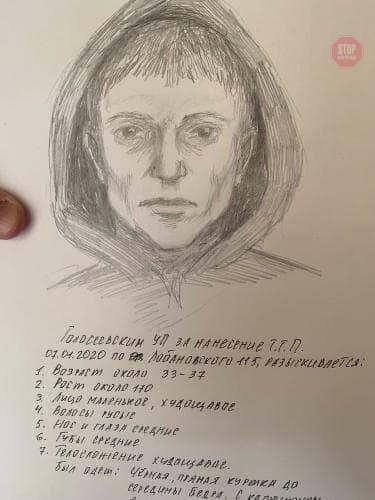 STOP
Голосеевским УП за нанесение Т.Т.П.
07.01.2020 по Лобановского 115, разыскивается:
1. Возраст около 33-37
2. Рост около 170
3. Лицо маленькое, худощавое
4. Волосы русые
5. Нос и глаза средние
6. Губы средние
7. Телосложение худощавое.
был одет: чёрная, прямая куртка до
середины бедра, с капюшоном